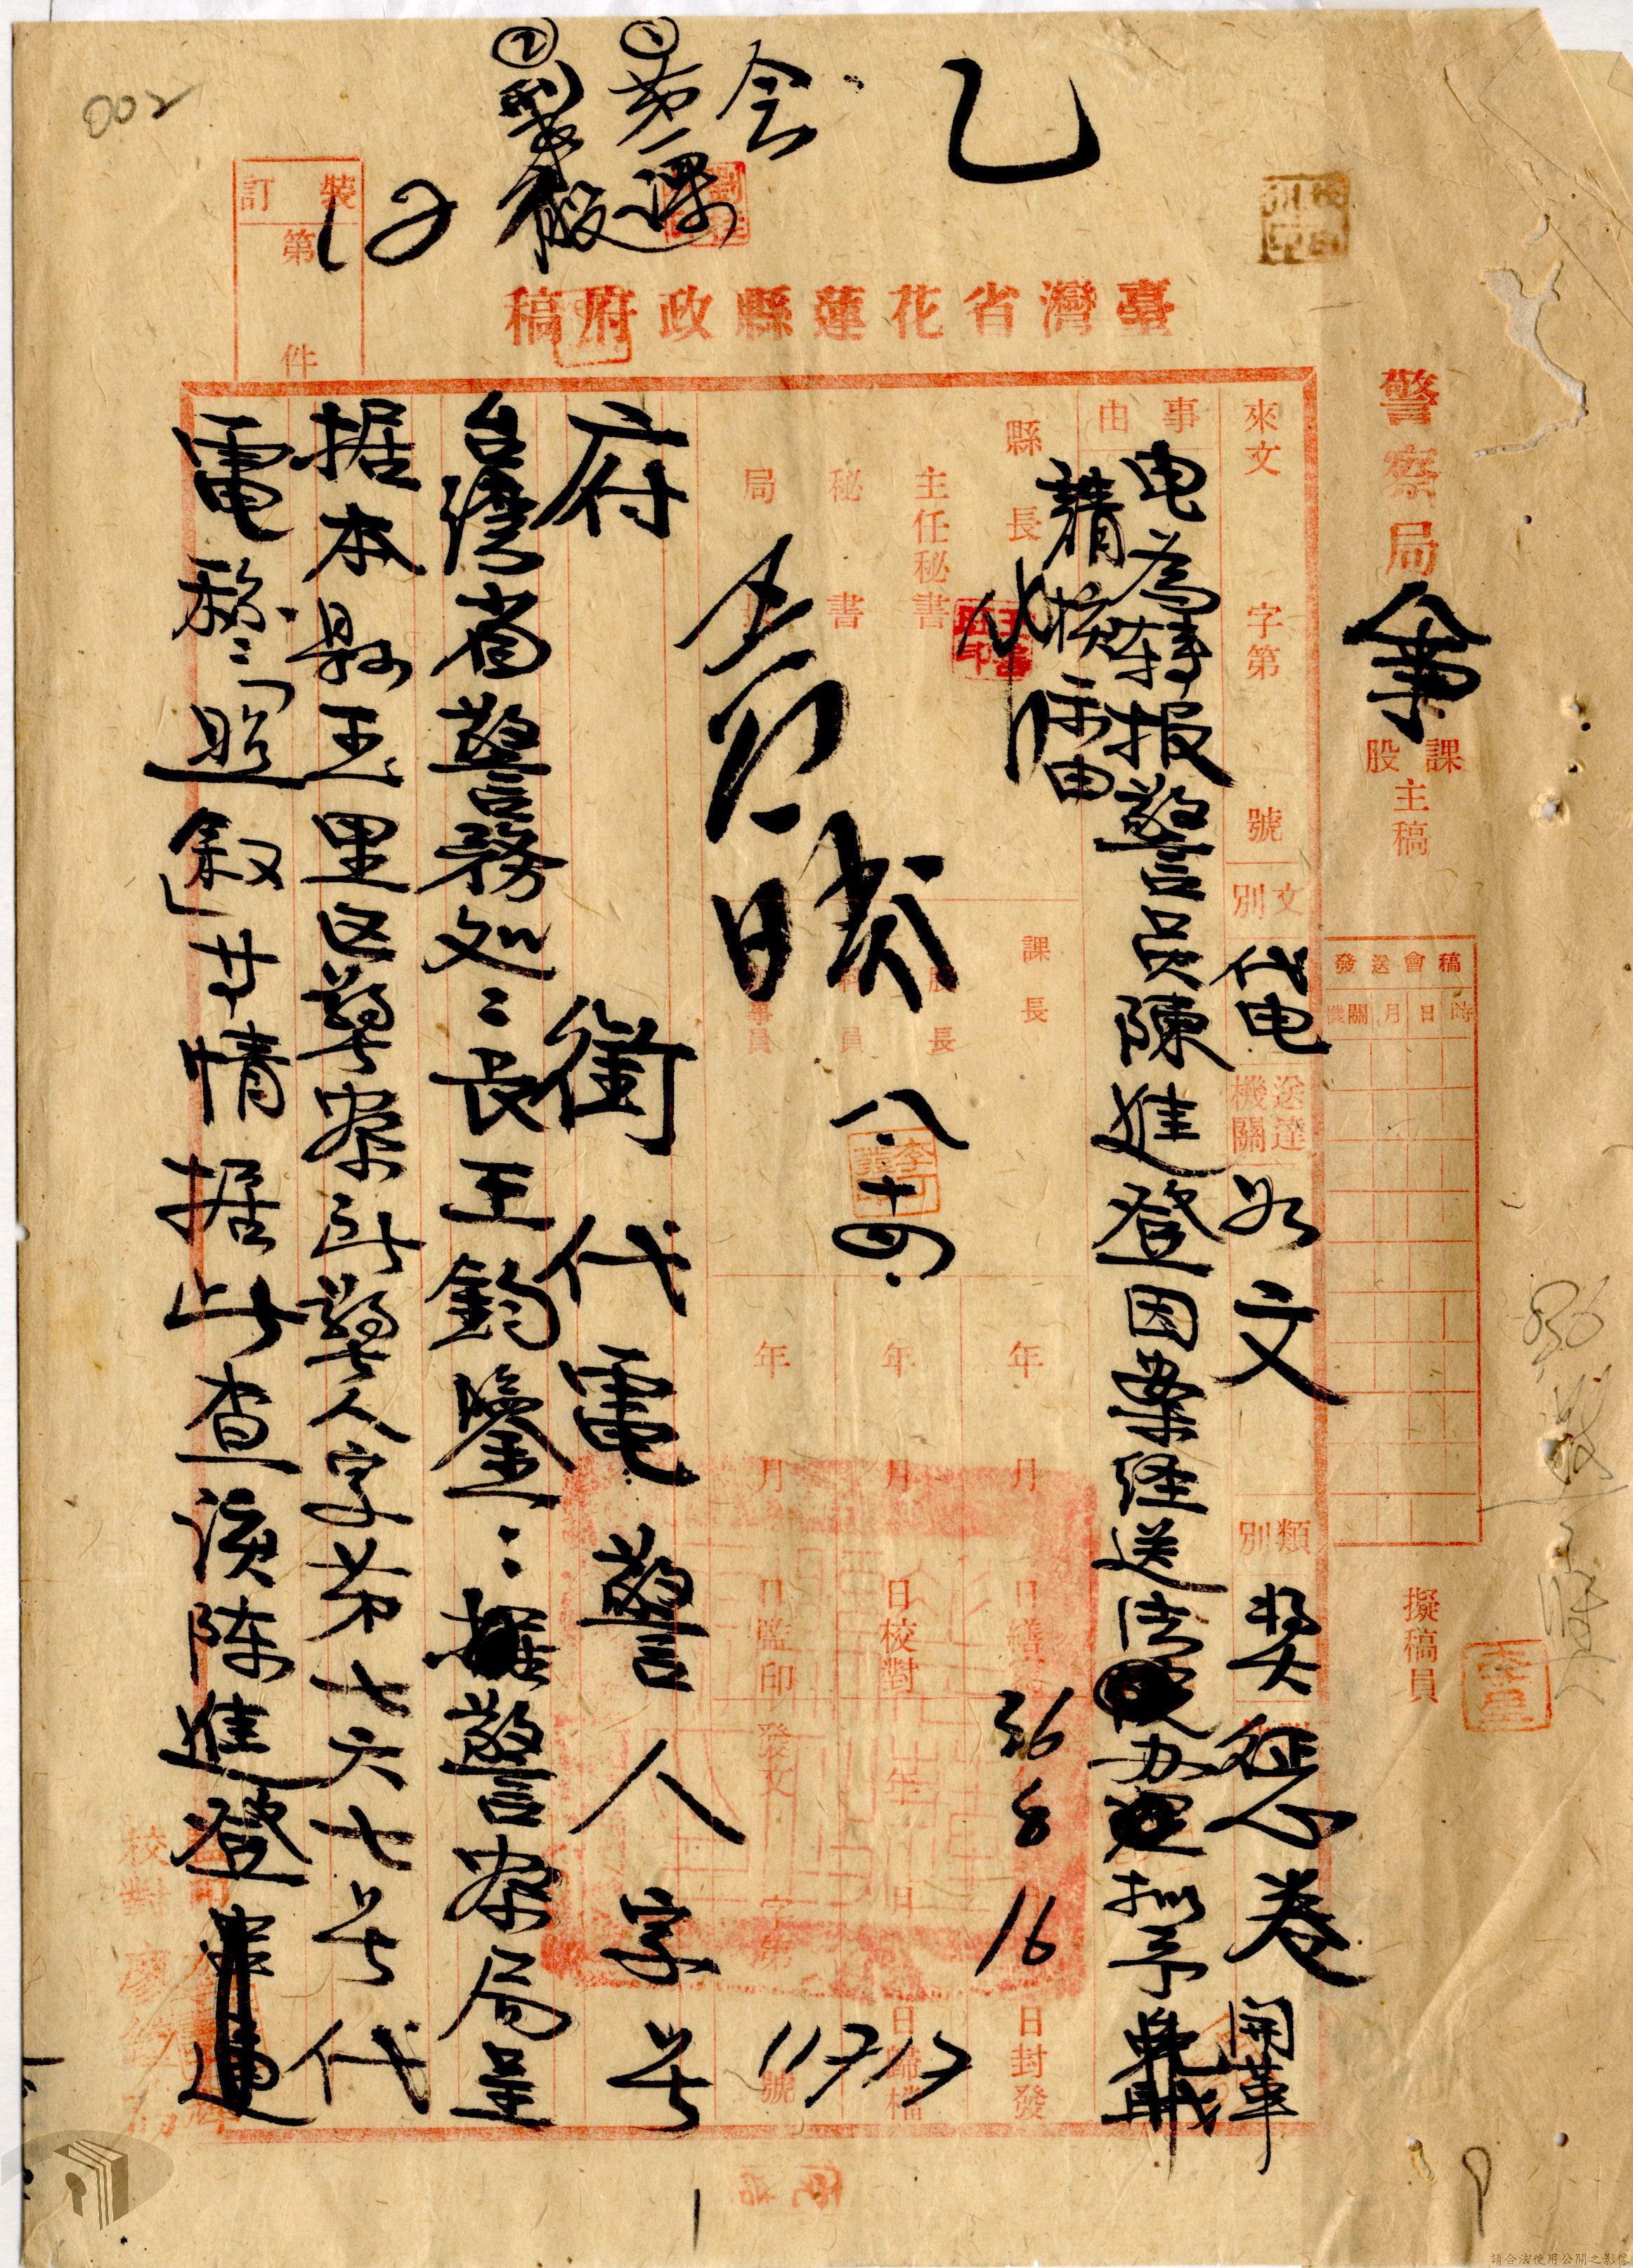 002
乙
会
①第一課
②刑事股
裝訂第件
臺灣省花蓮縣政府稿
警察局
課股主稿
擬稿員
稿會送發
時日月關機
來文字第號
文別
代电
送達機關
如文
類別
奖征卷
開革
事由
电為转报警員陳進登因案経送法院办理拟予免職
請核示由
縣長
主任秘書
秘書
局長
課長
股長
科員
辦事員
八、十四、
年月日繕寫
年月日校對
年月日監印
36 8 16
年月日封發
日歸檔
發文字第號
11717
府銜代電警人字号
台灣省警務处处長王鈞鑒：据警察局呈
据本县玉里区警察所警人字第七六七号代
電称：「照叙」廿情据此查该陈進登
校對
請合法使用公開之影像